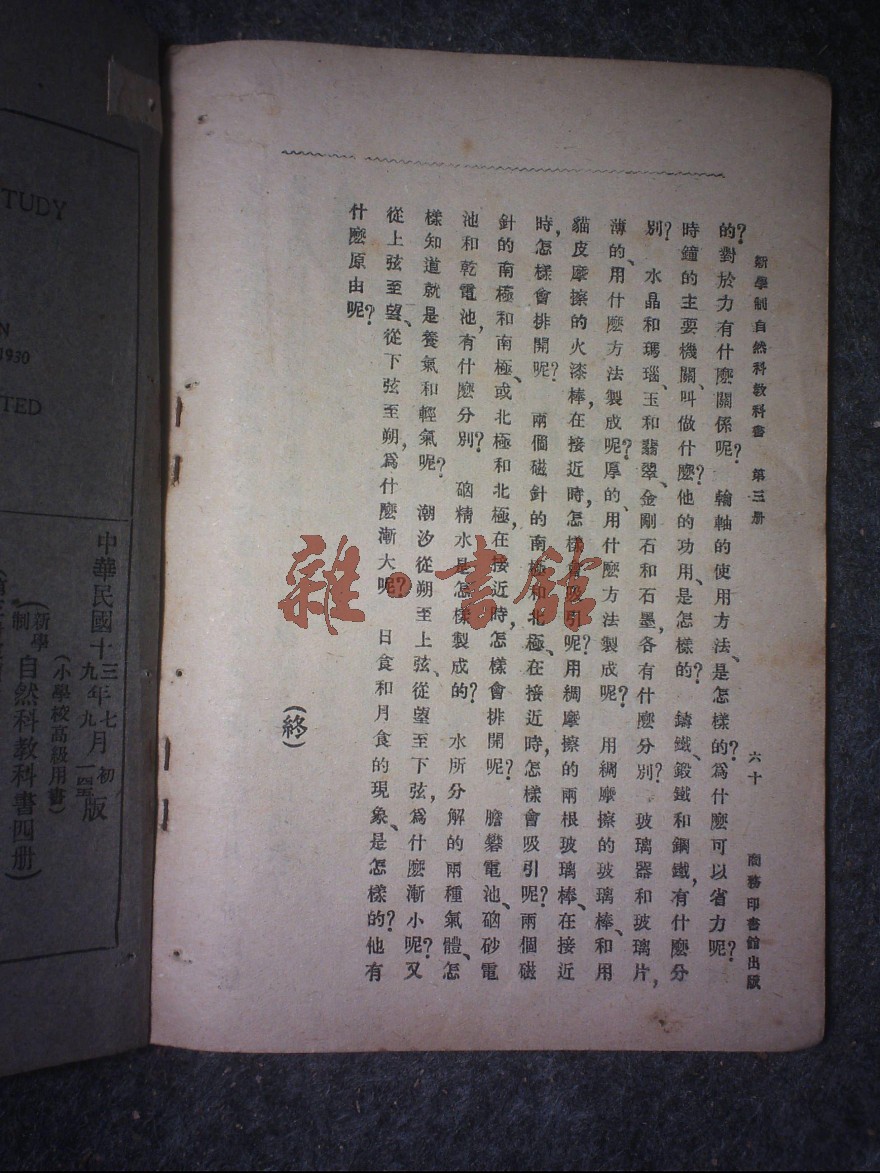 新學制自然科教科書 第三册 六十 商務印書館出版
的?對於力有什麽關係呢? 輪軸的使用方法、是怎樣的?爲什麽可以省力呢?
時鐘的主要機關、叫做什麽?他的功用、是怎樣的? 鑄鐵、鍛鐵和鋼鐵,有什麽分
別? 水晶和瑪瑙、玉和翡翠、金剛石和石墨、各有什麽分別? 玻璃器和玻璃片,
薄的、用什麽方法製成呢?厚的、用什麽方法製成呢? 用綢摩擦的玻璃棒、和用
貓皮摩擦的火漆棒,在接近時,怎樣會吸引呢?用綢摩擦的兩根玻璃棒、在接近
時,怎樣會排開呢? 兩個磁針的南極和北極、在接近時,怎樣會吸引呢?兩個磁
針的南極和南極、或北極和北極,在接近時,怎樣會排開呢? 膽礬電池、硇砂電
池和乾電池,有什麽分別? 硇精水是怎樣製成的? 水所分解的兩種氣體、怎
樣知道就是養氣和輕氣呢? 潮汐從朔至上弦、從望至下弦,爲什麽漸小呢?又
從上弦至望、從下弦至朔,爲什麽漸大呢? 日食和月食的現象、是怎樣的?他有
什麽原由呢?
(終)
雜·書館
TUDY
N
1930
TED
中華民國十三年七月初版
九年九月
(小學校高級用書)
(新學制自然科教科書四册)